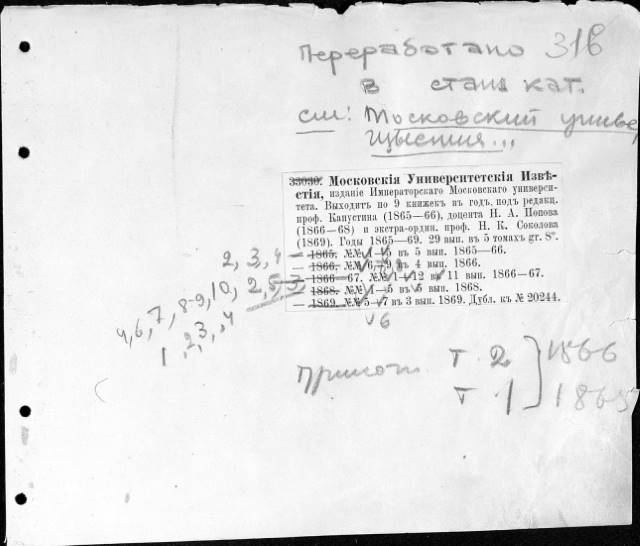 Переработано 31в
в станд кат.
см: Московский универ
Известия...
33030. Московскія Университетскія Извѣ-
стія, изданіе Императорскаго Московскаго универси-
тета. Выходитъ по 9 книжекъ въ годъ, подъ редакц.
проф. Капустина (1865—66), доцента Н. А. Попова
(1866—68) и экстра-ордин. проф. Н. К. Соколова
(1869). Годы 1865—69. 29 вып. въ 5 томахъ gr. 8°.
2, 3, 4 — 1865. №№ 1—5 въ 5 вып. 1865—66.
— 1866. №№ 6, 7, 9 въ 4 вып. 1866.
4, 6, 7, 8-9, 10, 2, 5, 3 — 1866—67. №№ 1—12 въ 11 вып. 1866—67.
— 1868. №№ 1—5 въ 5 вып. 1868.
1, 2, 3, 4 — 1869. №№ 5—7 въ 3 вып. 1869. Дубл. къ № 20244.
v6
Прилож. т. 2 1866
т. 1 1865